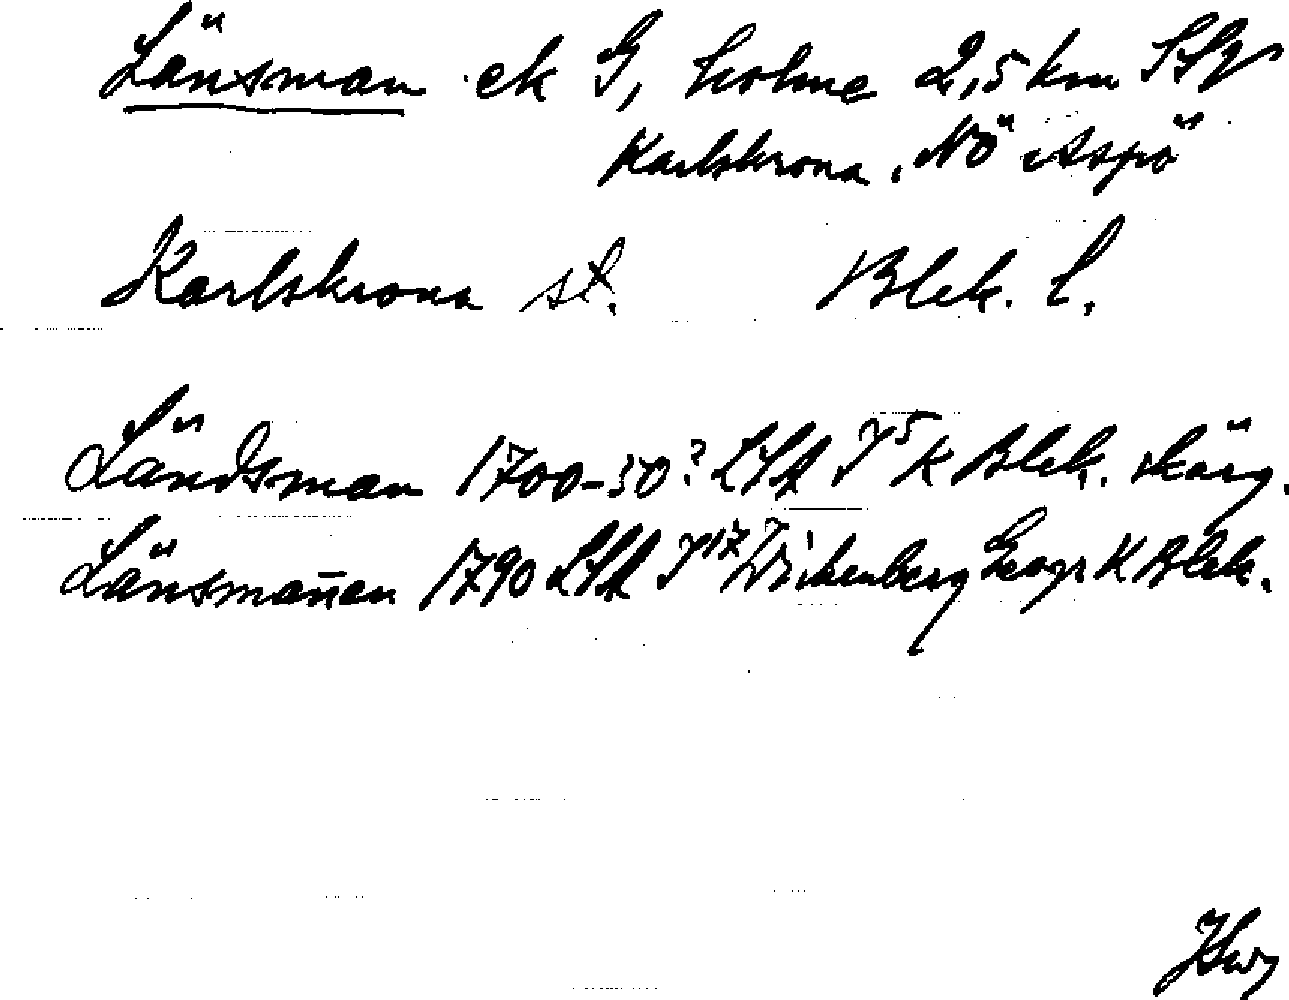 Länsman ek G, holme 2,5 km SSV
Karlskrona, NÖ Aspö
Karlskrona st. Blek. l.
Ländsman 1700-50? LSA J⁵ K Blek. skärg.
Länsmanen 1790 LSA J¹⁷ Wikenberg Geogr K Blek.